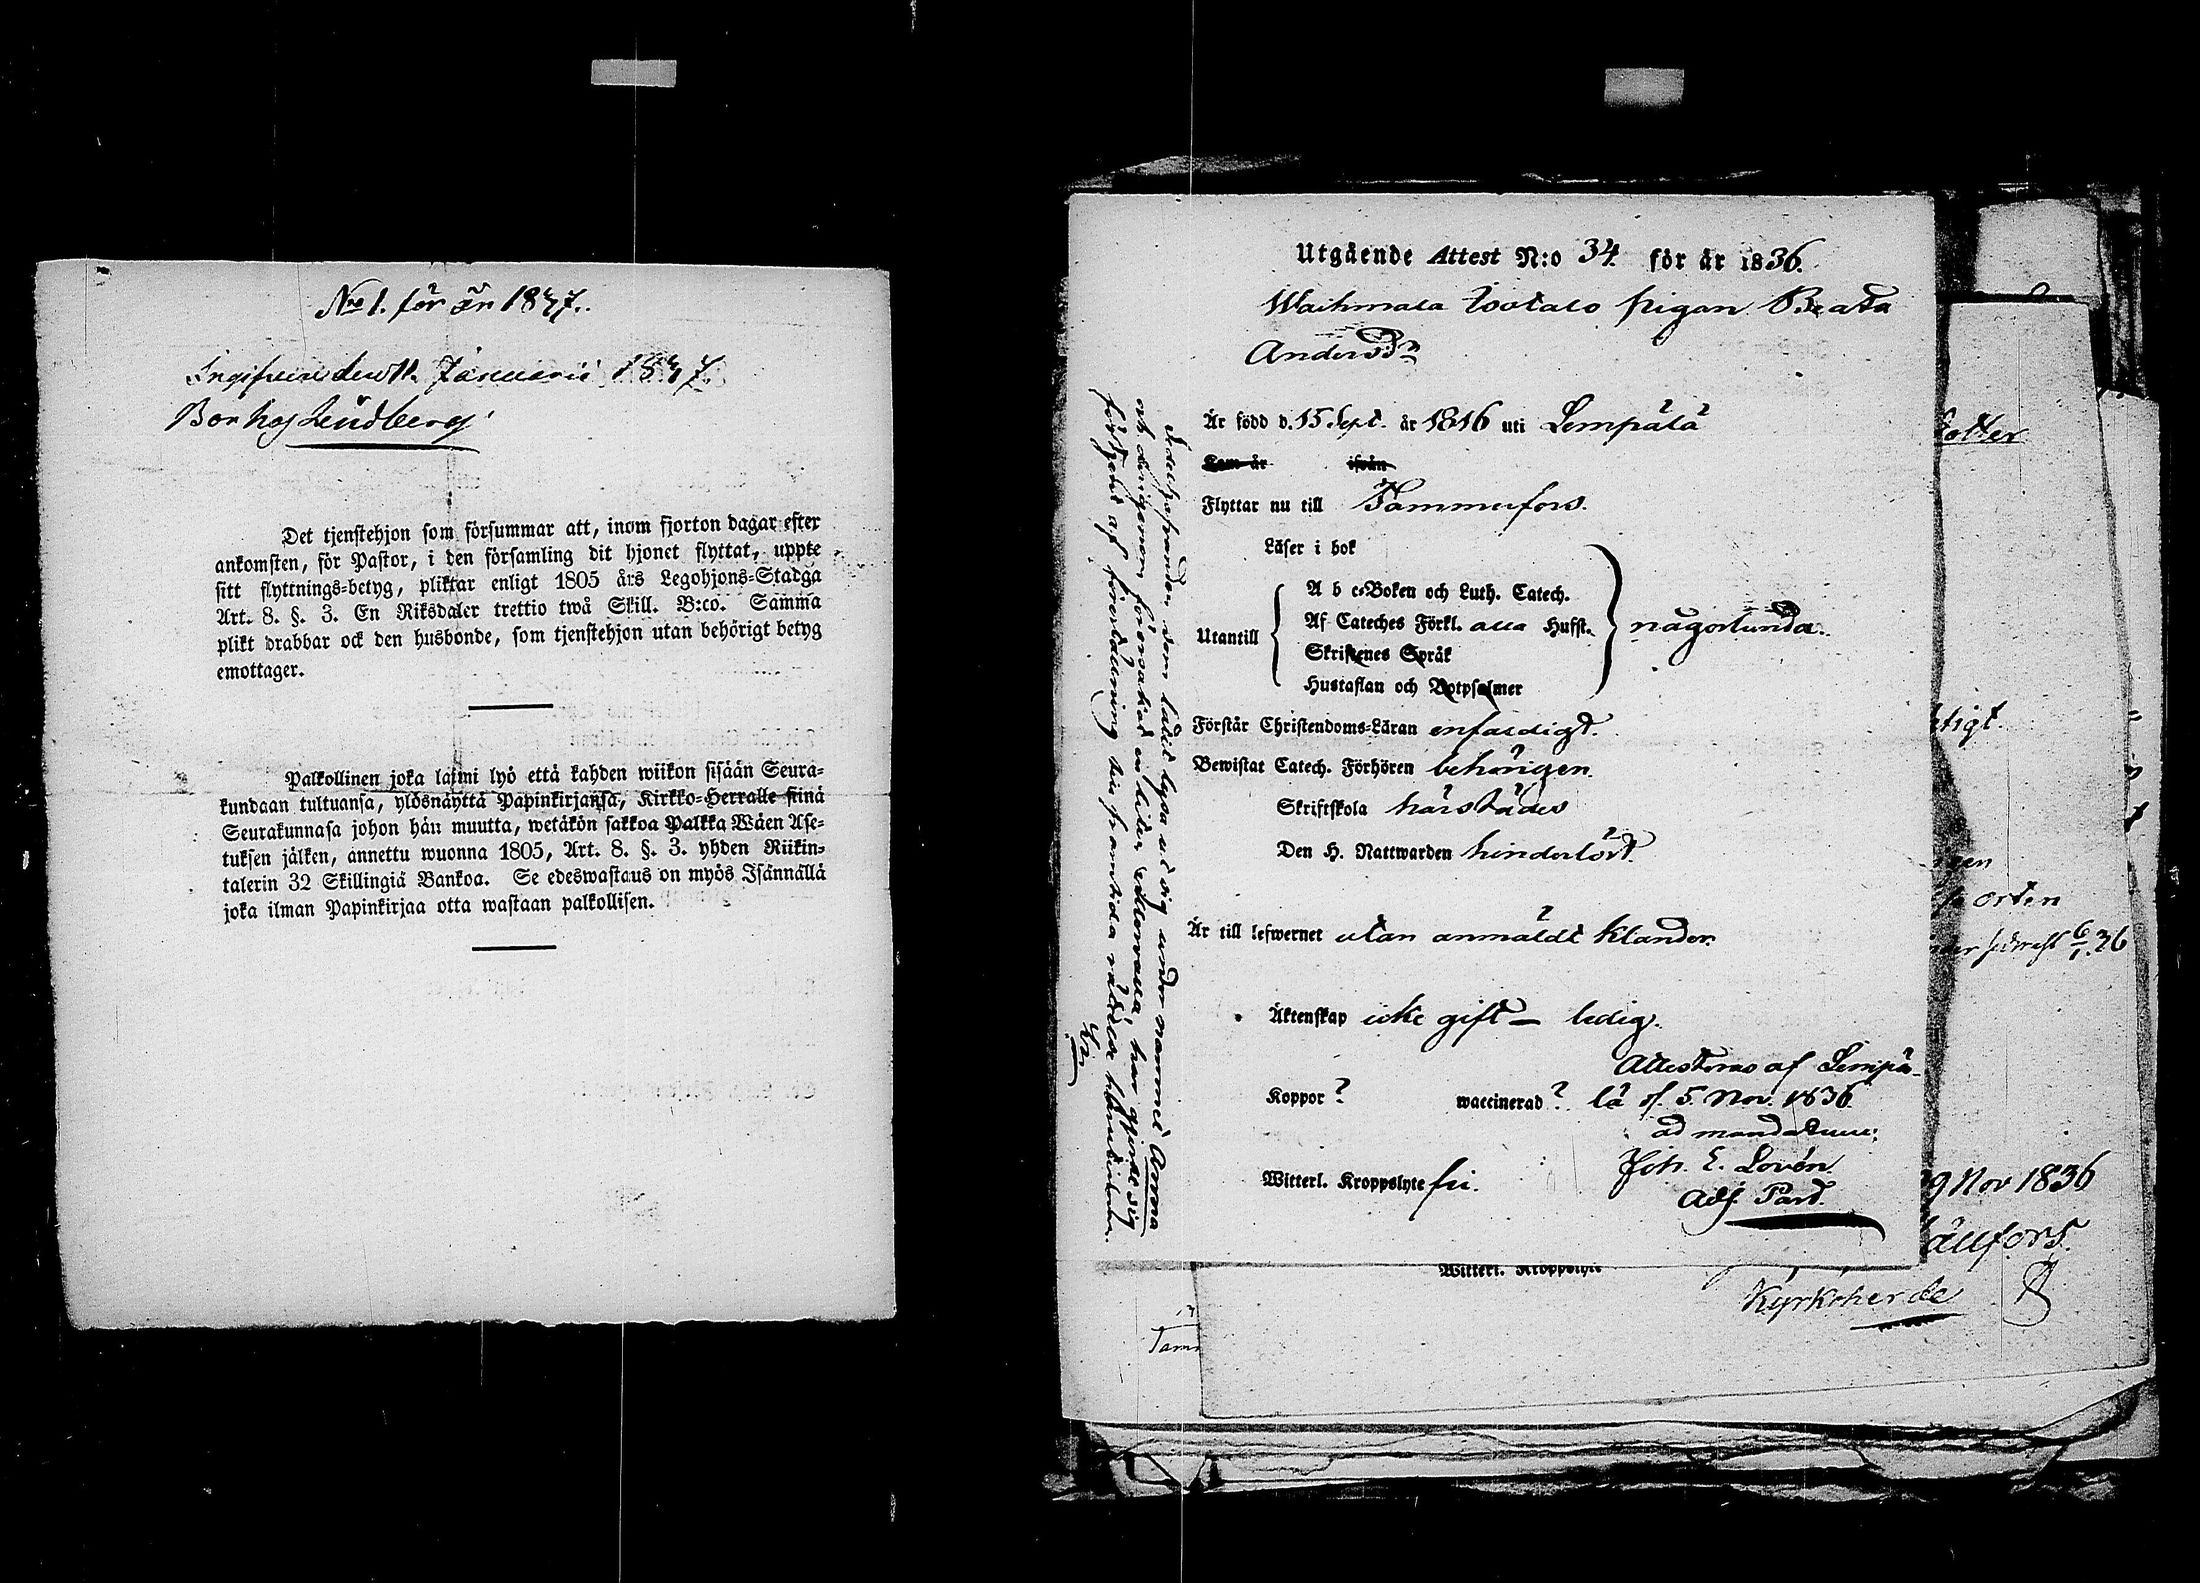 No 1. för år 1837.
Januarii 1837.
Lindberg
Det tjenstehjon som försummar att, inom fjorton dagar efter
ankomsten, för Pastor, i den församling dit hjonet flyttat, uppte
sitt flyttnings-betyg, pliktar enligt 1805 års Legohjons-Stadga
Art. 8. §. 3. En Riksdaler trettio twå Skill. B:co. Samma
plikt drabbar ock den husbonde, som tjenstehjon utan behörigt betyg
emottager.
Palkollinen joka laimi lyö että kahden wiikon sisään Seura-
kundaan tultuansa, ylösnäyttä Papinkirjansa, Kirkko-Herralle siinä
Seurakunnasa johon hän muutta, wetäkön sakkoa Palkka Wäen Ase-
tuksen jälken, annettu wuonna 1805, Art. 8. §. 3. yhden Riikin-
talerin 32 Skillingiä Bankoa. Se edeswastaus on myös Isännällä
joka ilman Papinkirjaa otta wastaan palkollisen.
Utgående Attest N:o 34. för år 1836.
pigan Beata
Andersdr
Är född d. 15 Sept. år 1816 uti Lempälä
Kom år ifrån
Flyttar nu till Tammerfors.
Läser i bok
A b c-Boken och Luth. Catech.
Af Cateches Förkl. alla Hufst. någorlunda.
Utantill
Skriftenes Språk
Hustaflan och Botpsalmer
Förstår Christendoms-Läran enfaldigt.
Bewistat Catech. Förhören behörigen
Skriftskola härstädes
Den H. Nattwarden hinderlöst
Är till lefwernet utan anmäldt klander.
Äktenskap icke gift – ledig.
Attesteras af Lempä-
Koppor? waccinerad? lä d. 5. Nov. 1836.
ad mandatum:
Joh. E. Lovén
Witterl. Kroppslyte fri.
Adj. Past.
under namnet Anna
har gjordt sig
otter
tigt.
orten
6/1 36
9 Nov 1836
ällfors.
Witterl. Kroppslyte
Kyrkoherde
Tam